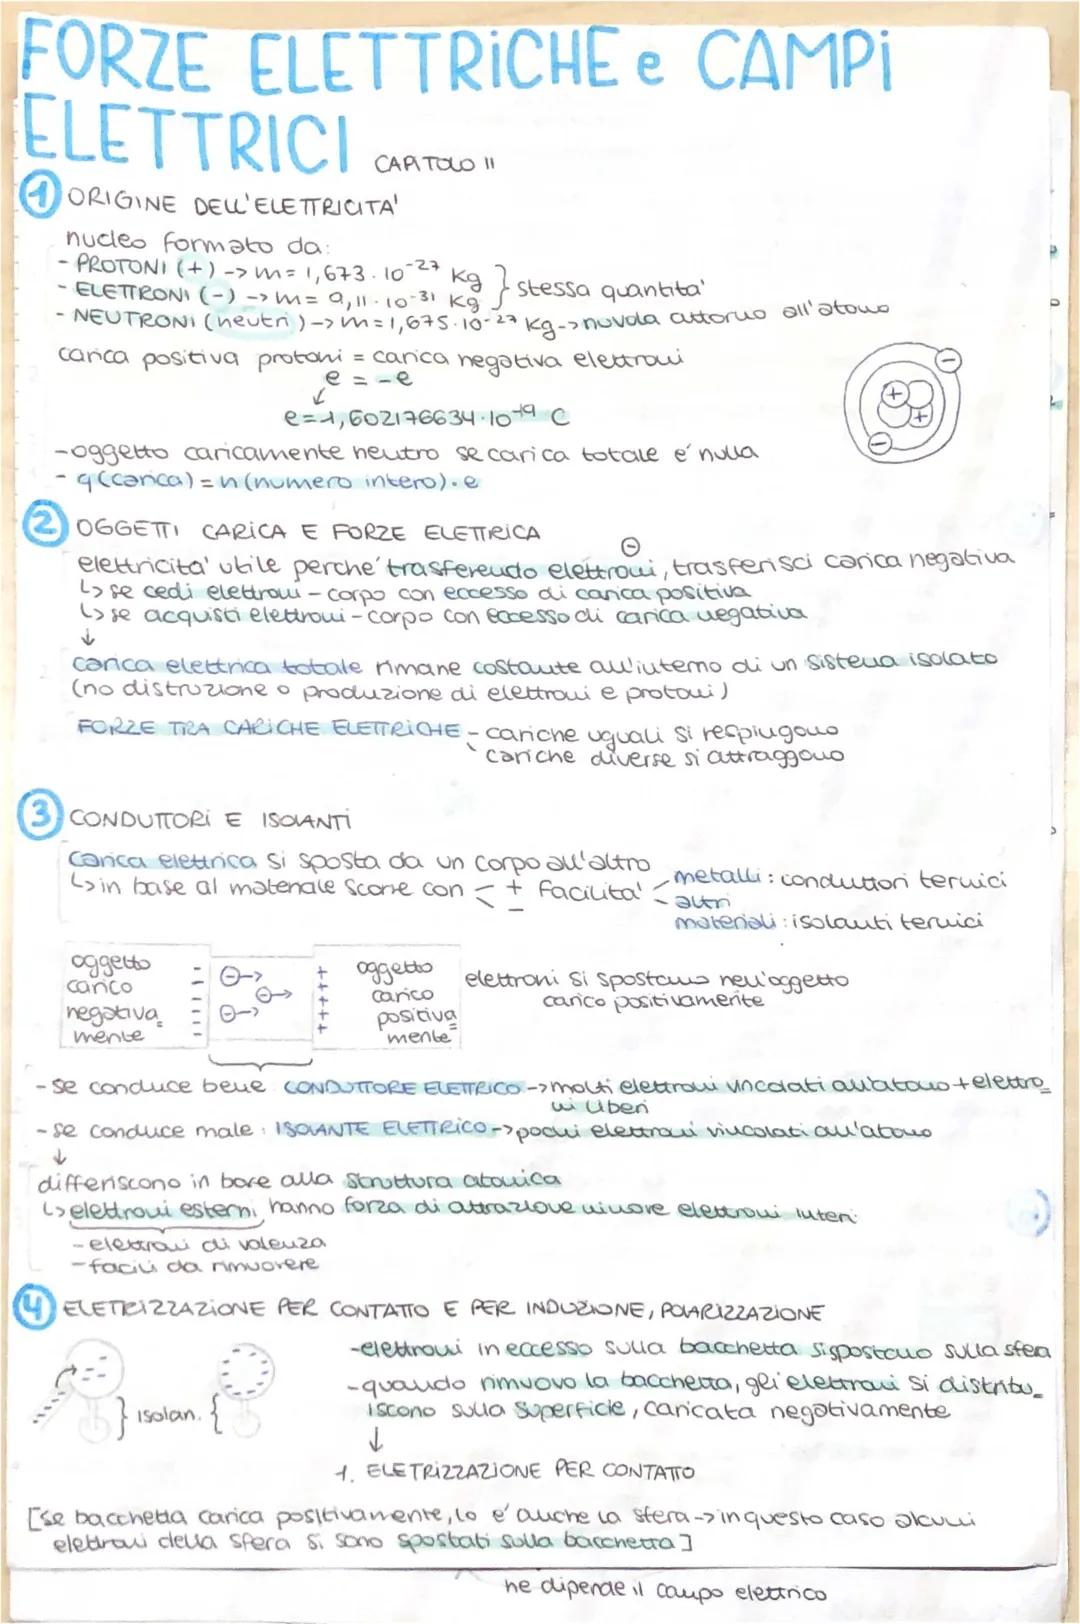 FORZE ELETTRICHE e CAMPI
ELETTRICI CAPITOLO 11
1 ORIGINE DELL'ELETTRICITA'
nucleo formato da:
- PROTONI (+) -> m= 1,673·10⁻²⁷ Kg } stessa quantita'
- ELETTRONI (-) -> m= 9,11·10⁻³¹ Kg
- NEUTRONI (neutri) -> m=1,675·10⁻²⁷ Kg -> nuvola attorno all'atomo
carica positiva protoni = carica negativa elettroni
e = -e
↓
e=1,602176634·10⁻¹⁹ C
- oggetto caricamente neutro se carica totale e' nulla
- q(carica) = n (numero intero)·e
+
+
-
-
2 OGGETTI CARICA E FORZE ELETTRICA
-
elettricita' utile perche' trasferendo elettroni, trasferisci carica negativa
↳ se cedi elettroni - corpo con eccesso di carica positiva
↳ se acquisti elettroni - corpo con eccesso di carica negativa
↓
carica elettrica totale rimane costante all'interno di un sistema isolato
(no distruzione o produzione di elettroni e protoni)
FORZE TRA CARICHE ELETTRICHE - cariche uguali si respingono
cariche diverse si attraggono
3 CONDUTTORI E ISOLANTI
carica elettrica si sposta da un corpo all'altro
↳ in base al materiale scorre con < + - facilita' - metalli: conduttori termici
- altri
materiali: isolanti termici
oggetto carico negativa= mente
oggetto carico positiva= mente
elettroni si spostano nell'oggetto
carico positivamente
- se conduce bene CONDUTTORE ELETTRICO -> molti elettroni vincolati all'atomo + elettro=
ni liberi
- se conduce male : ISOLANTE ELETTRICO -> pochi elettroni vincolati all'atomo
↓
differiscono in base alla struttura atomica
↳ elettroni esterni hanno forza di attrazione minore elettroni interi
- elettroni di valenza
- facili da rimuovere
4 ELETRIZZAZIONE PER CONTATTO E PER INDUZIONE, POLARIZZAZIONE
- elettroni in eccesso sulla bacchetta si spostano sulla sfera
- quando rimuovo la bacchetta, gli elettroni si distribu=
iscono sulla superficie, caricata negativamente
} isolan. {
↓
1. ELETRIZZAZIONE PER CONTATTO
[se bacchetta carica positivamente, lo e' anche la sfera -> in questo caso alcuni
elettroni della sfera si sono spostati sulla bacchetta]
ne dipende il campo elettrico